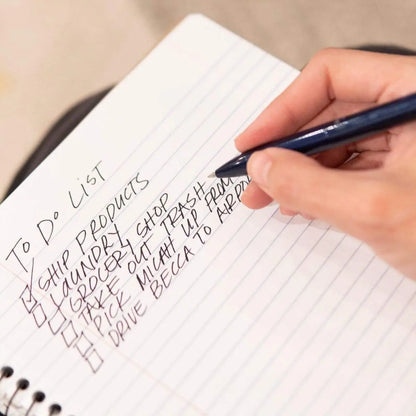 To Do List
Ship Products
Laundry
Grocery Shop
Take Out Trash
Pick Micah Up From
Drive Becca To Airport